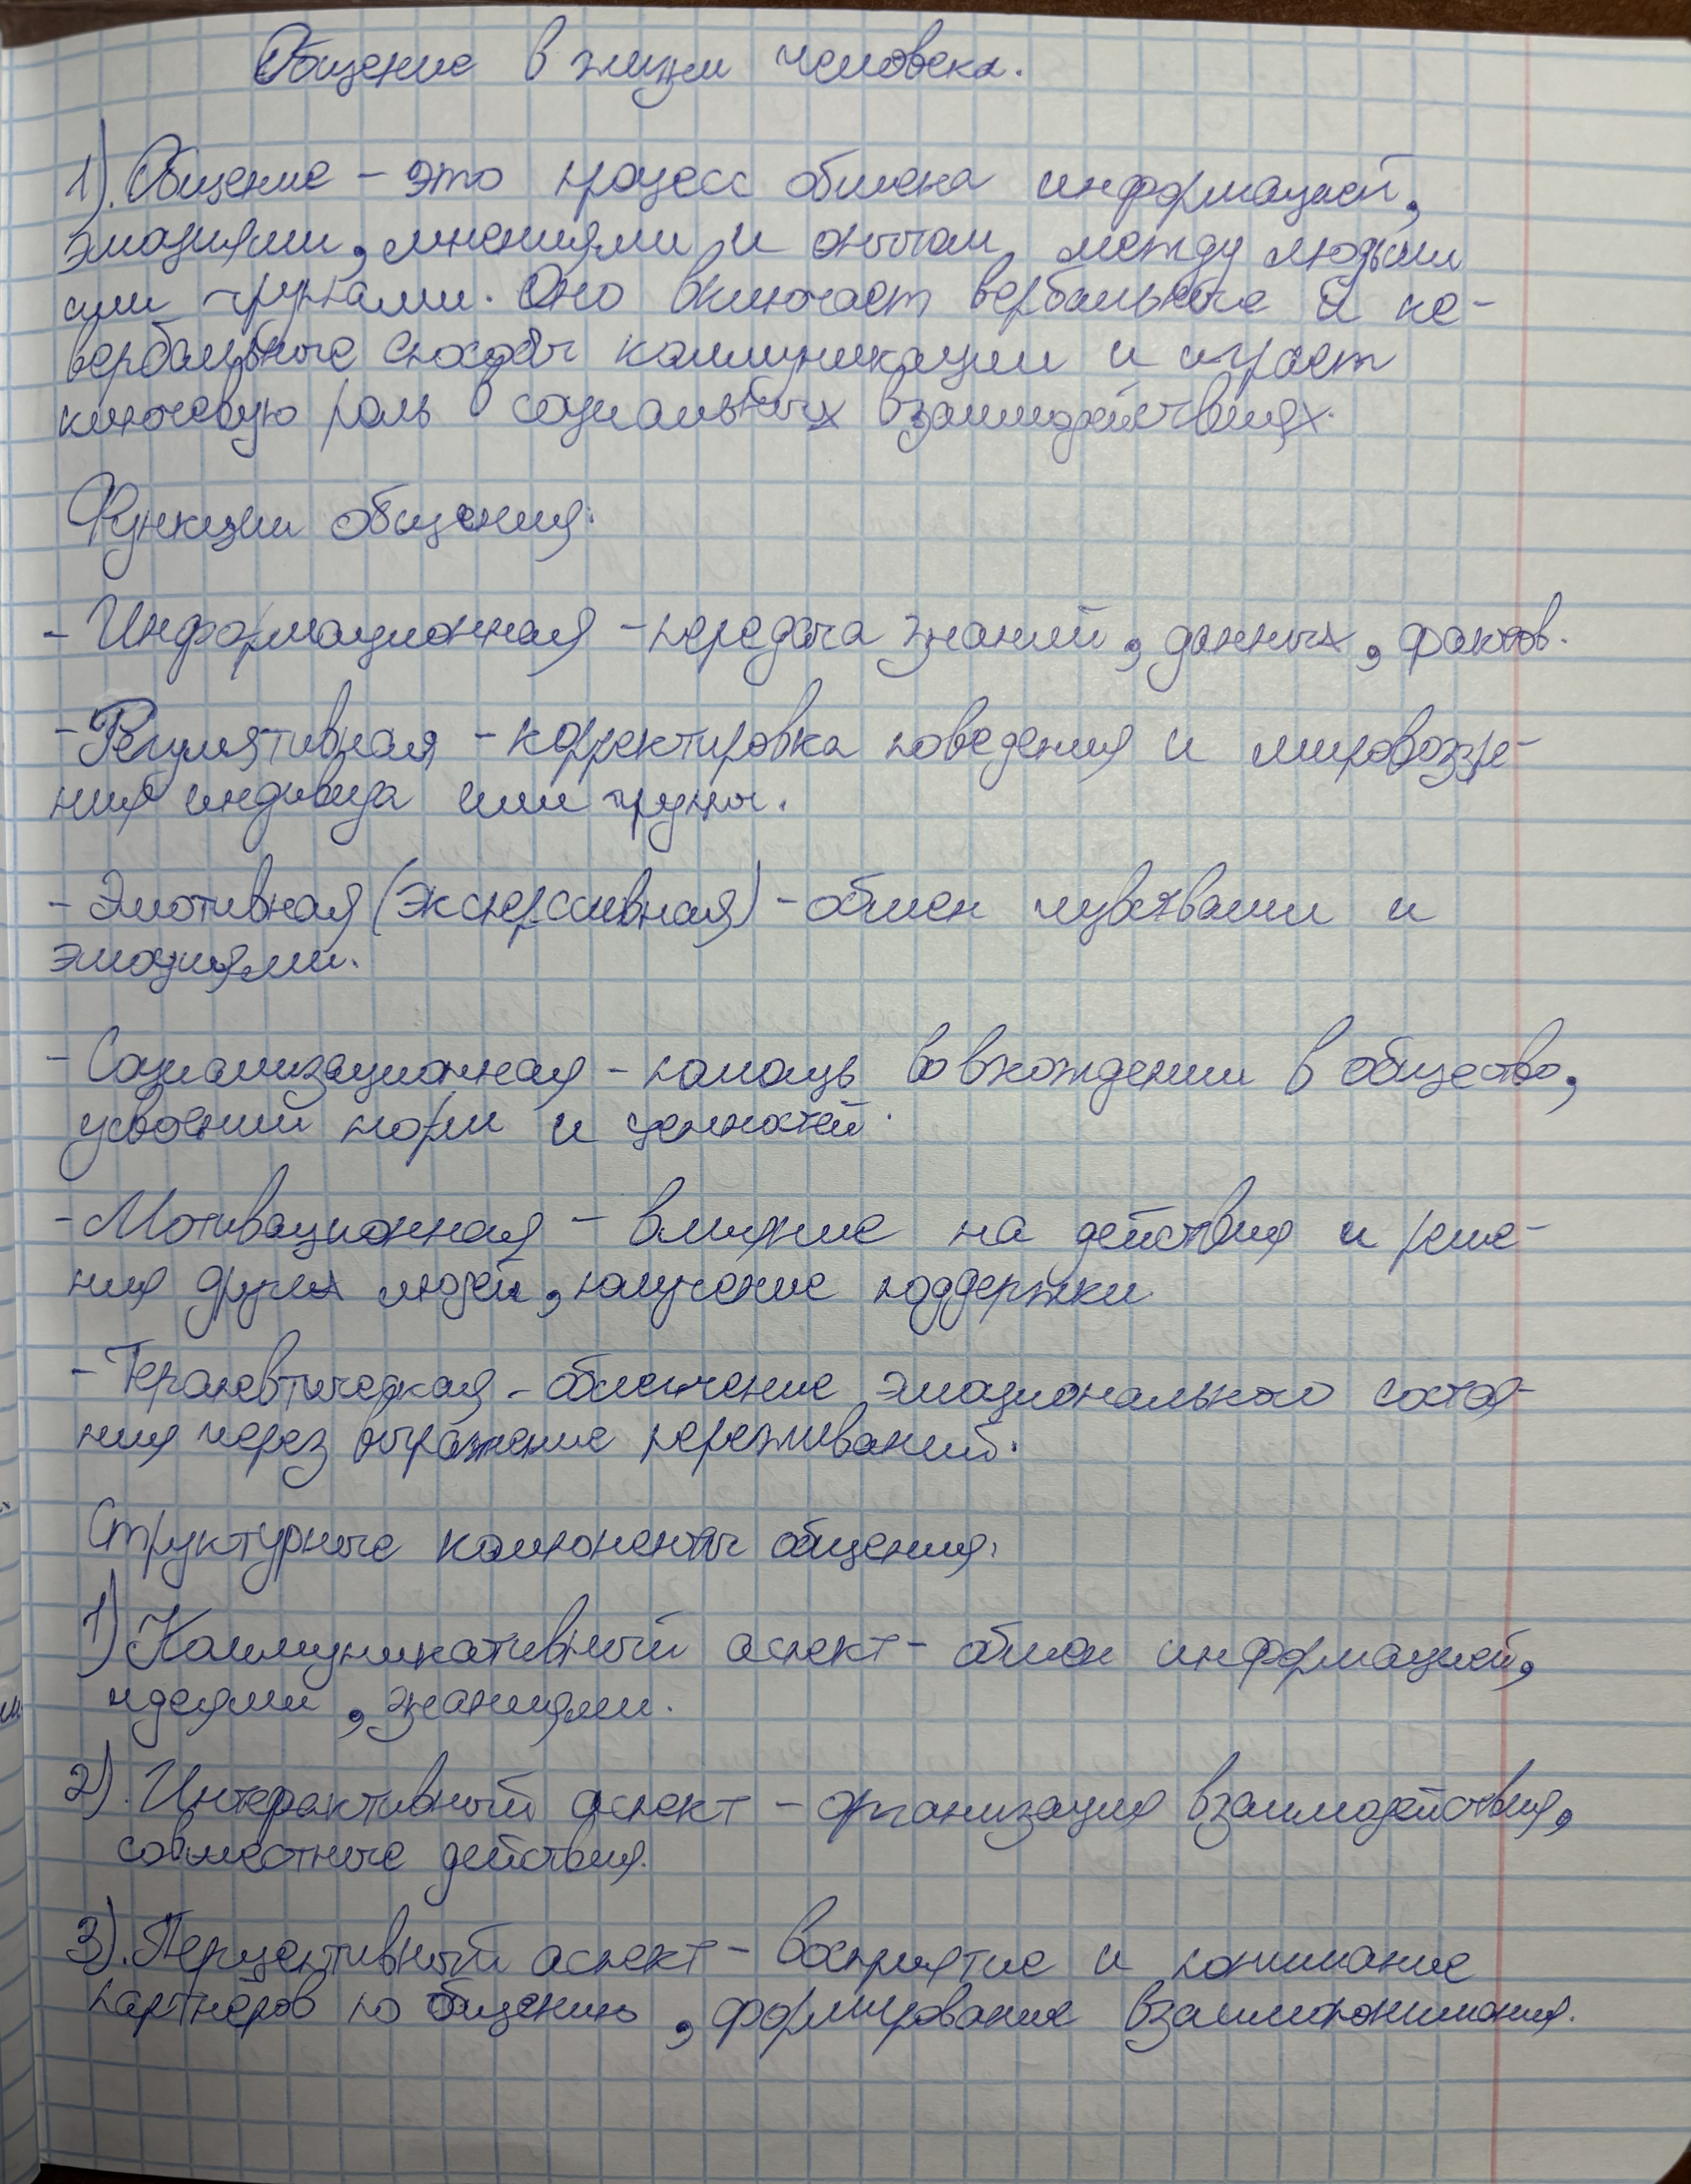 Общение в жизни человека.
1). Общение – это процесс обмена информацией,
эмоциями, мнениями и опытом между людьми
или группами. Оно включает вербальные и не-
вербальные способы коммуникации и играет
ключевую роль в социальных взаимодействиях.
Функции общения:
- Информационная – передача знаний, данных, фактов.
- Регулятивная – корректировка поведения и мировоззре-
ния индивида или группы.
- Эмотивная (экспрессивная) – обмен чувствами и
эмоциями.
- Социализационная – помощь во вхождении в общество,
усвоений норм и ценностей.
- Мотивационная – влияние на действия и реше-
ния других людей, получение поддержки
- Терапевтическая – облегчение эмоционального состоя-
ния через выражение переживаний.
Структурные компоненты общения:
1) Коммуникативный аспект – обмен информацией,
идеями, знаниями.
2). Интерактивный аспект – организация взаимодействия,
совместные действия.
3). Перцептивный аспект – восприятие и понимание
партнёров по общению, формирование взаимопонимания.